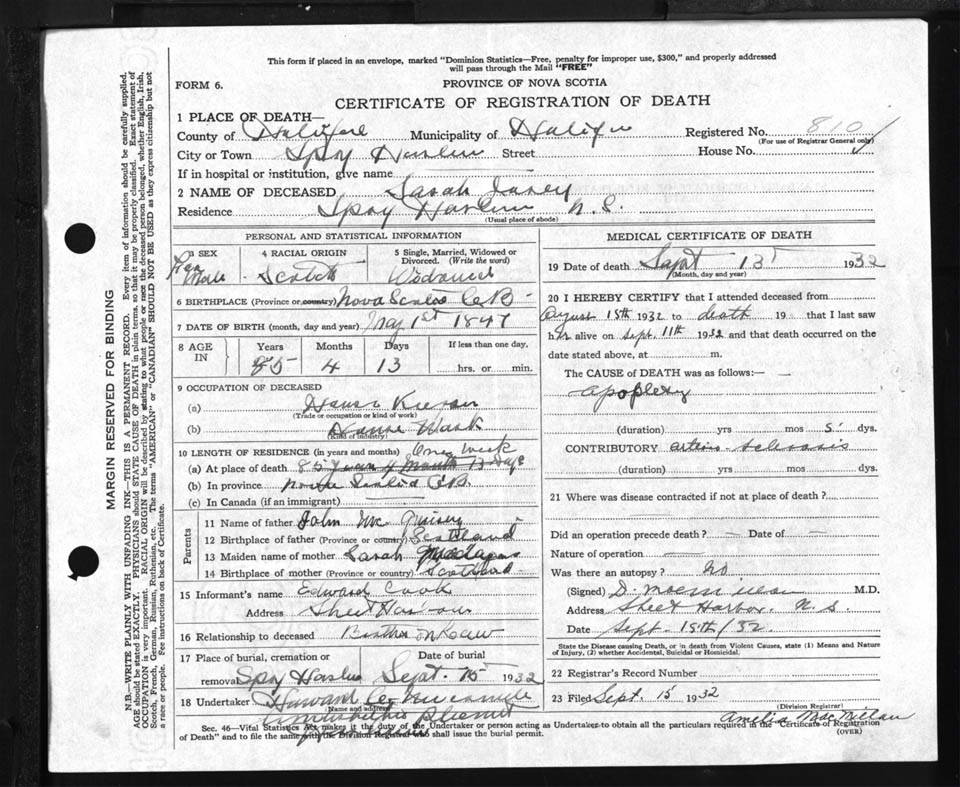 This form if placed in an envelope, marked "Dominion Statistics—Free, penalty for improper use, $300," and properly addressed
will pass through the Mail "FREE"
FORM 6.
PROVINCE OF NOVA SCOTIA
CERTIFICATE OF REGISTRATION OF DEATH
1 PLACE OF DEATH—
County of Halifax Municipality of Halifax Registered No. 810
(For use of Registrar General only)
City or Town Spry Harbor Street House No.
If in hospital or institution, give name
2 NAME OF DECEASED Sarah
Residence Spry Harbor N.S.
(Usual place of abode)
PERSONAL AND STATISTICAL INFORMATION
3 SEX
4 RACIAL ORIGIN
5 Single, Married, Widowed or Divorced. (Write the word)
Scotch
6 BIRTHPLACE (Province or country) Nova Scotia CB
7 DATE OF BIRTH (month, day and year) May 1st 1847
8 AGE IN
Years Months Days If less than one day.
85 4 13 hrs. or min.
9 OCCUPATION OF DECEASED
(a) House
(Trade or occupation or kind of work)
(b) Work
(Kind of industry)
10 LENGTH OF RESIDENCE (in years and months) One Week
(a) At place of death 85 Years 4 Month 13 days
(b) In province Nova Scotia CB.
(c) In Canada (if an immigrant)
Parents
11 Name of father John Mc
12 Birthplace of father (Province or country) Scotland
13 Maiden name of mother Sarah
14 Birthplace of mother (Province or country) Scotland
15 Informant's name Edward Cook
Address Sheet Harbour
16 Relationship to deceased Brother in Law
17 Place of burial, cremation or removal Spry Harbor
Date of burial Sept. 15 1932
18 Undertaker
(Name and address)
MEDICAL CERTIFICATE OF DEATH
19 Date of death Sept 13 1932
(Month, day and year)
20 I HEREBY CERTIFY that I attended deceased from
August 15th 1932 to death 19 that I last saw
her alive on Sept. 11th 1932 and that death occurred on the
date stated above, at m.
The CAUSE of DEATH was as follows:—
apoplexy
(duration) yrs mos 5 dys.
CONTRIBUTORY arterio-sclerosis
(duration) yrs mos dys.
21 Where was disease contracted if not at place of death?
Did an operation precede death? Date of
Nature of operation
Was there an autopsy? No.
(Signed) D. M.D.
Address Sheet Harbor. N.S.
Date Sept. 15th/32.
State the Disease causing Death, or in death from Violent Causes, state (1) Means and Nature
of Injury, (2) whether Accidental, Suicidal or Homicidal.
22 Registrar's Record Number
23 Filed Sept. 15 1932
(Division Registrar)
Amelia MacMillan
Sec. 46—Vital Statistics Act makes it the duty of the Undertaker or person acting as Undertaker to obtain all the particulars required in the "Certificate of Registration
of Death" and to file the same with the Division Registrar who shall issue the burial permit.
(OVER)
MARGIN RESERVED FOR BINDING
N.B.—WRITE PLAINLY WITH UNFADING INK—THIS IS A PERMANENT RECORD. Every item of information should be carefully supplied.
AGE should be stated EXACTLY. PHYSICIANS should STATE CAUSE OF DEATH in plain terms, so that it may be properly classified. Exact statement of
OCCUPATION is very important. RACIAL ORIGIN will be described by stating to what people or race the deceased person belonged, whether English, Irish,
Scotch, French, German, Russian, Ruthenian, etc. The terms "AMERICAN" or "CANADIAN" SHOULD NOT BE USED as they express citizenship but not
a race or people. Fee instructions on back of Certificate.